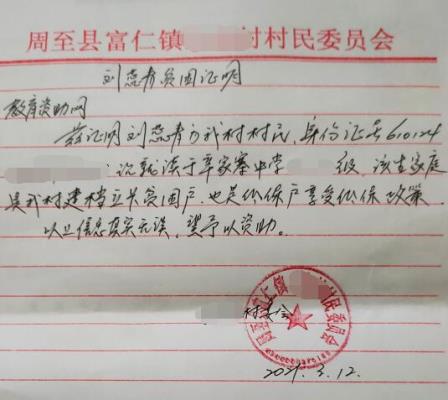 周至县富仁镇 村村民委员会
刘蕊青贫困证明
教育资助网
兹证明刘蕊青为我村村民,身份证号610124
现就读于辛家寨中学 级,该生家庭
是我村建档立卡贫困户,也是低保户享受低保政策。
以上信息真实无误,望予以资助。
周至县富仁镇 民委员会
村委会
2021.3.12.